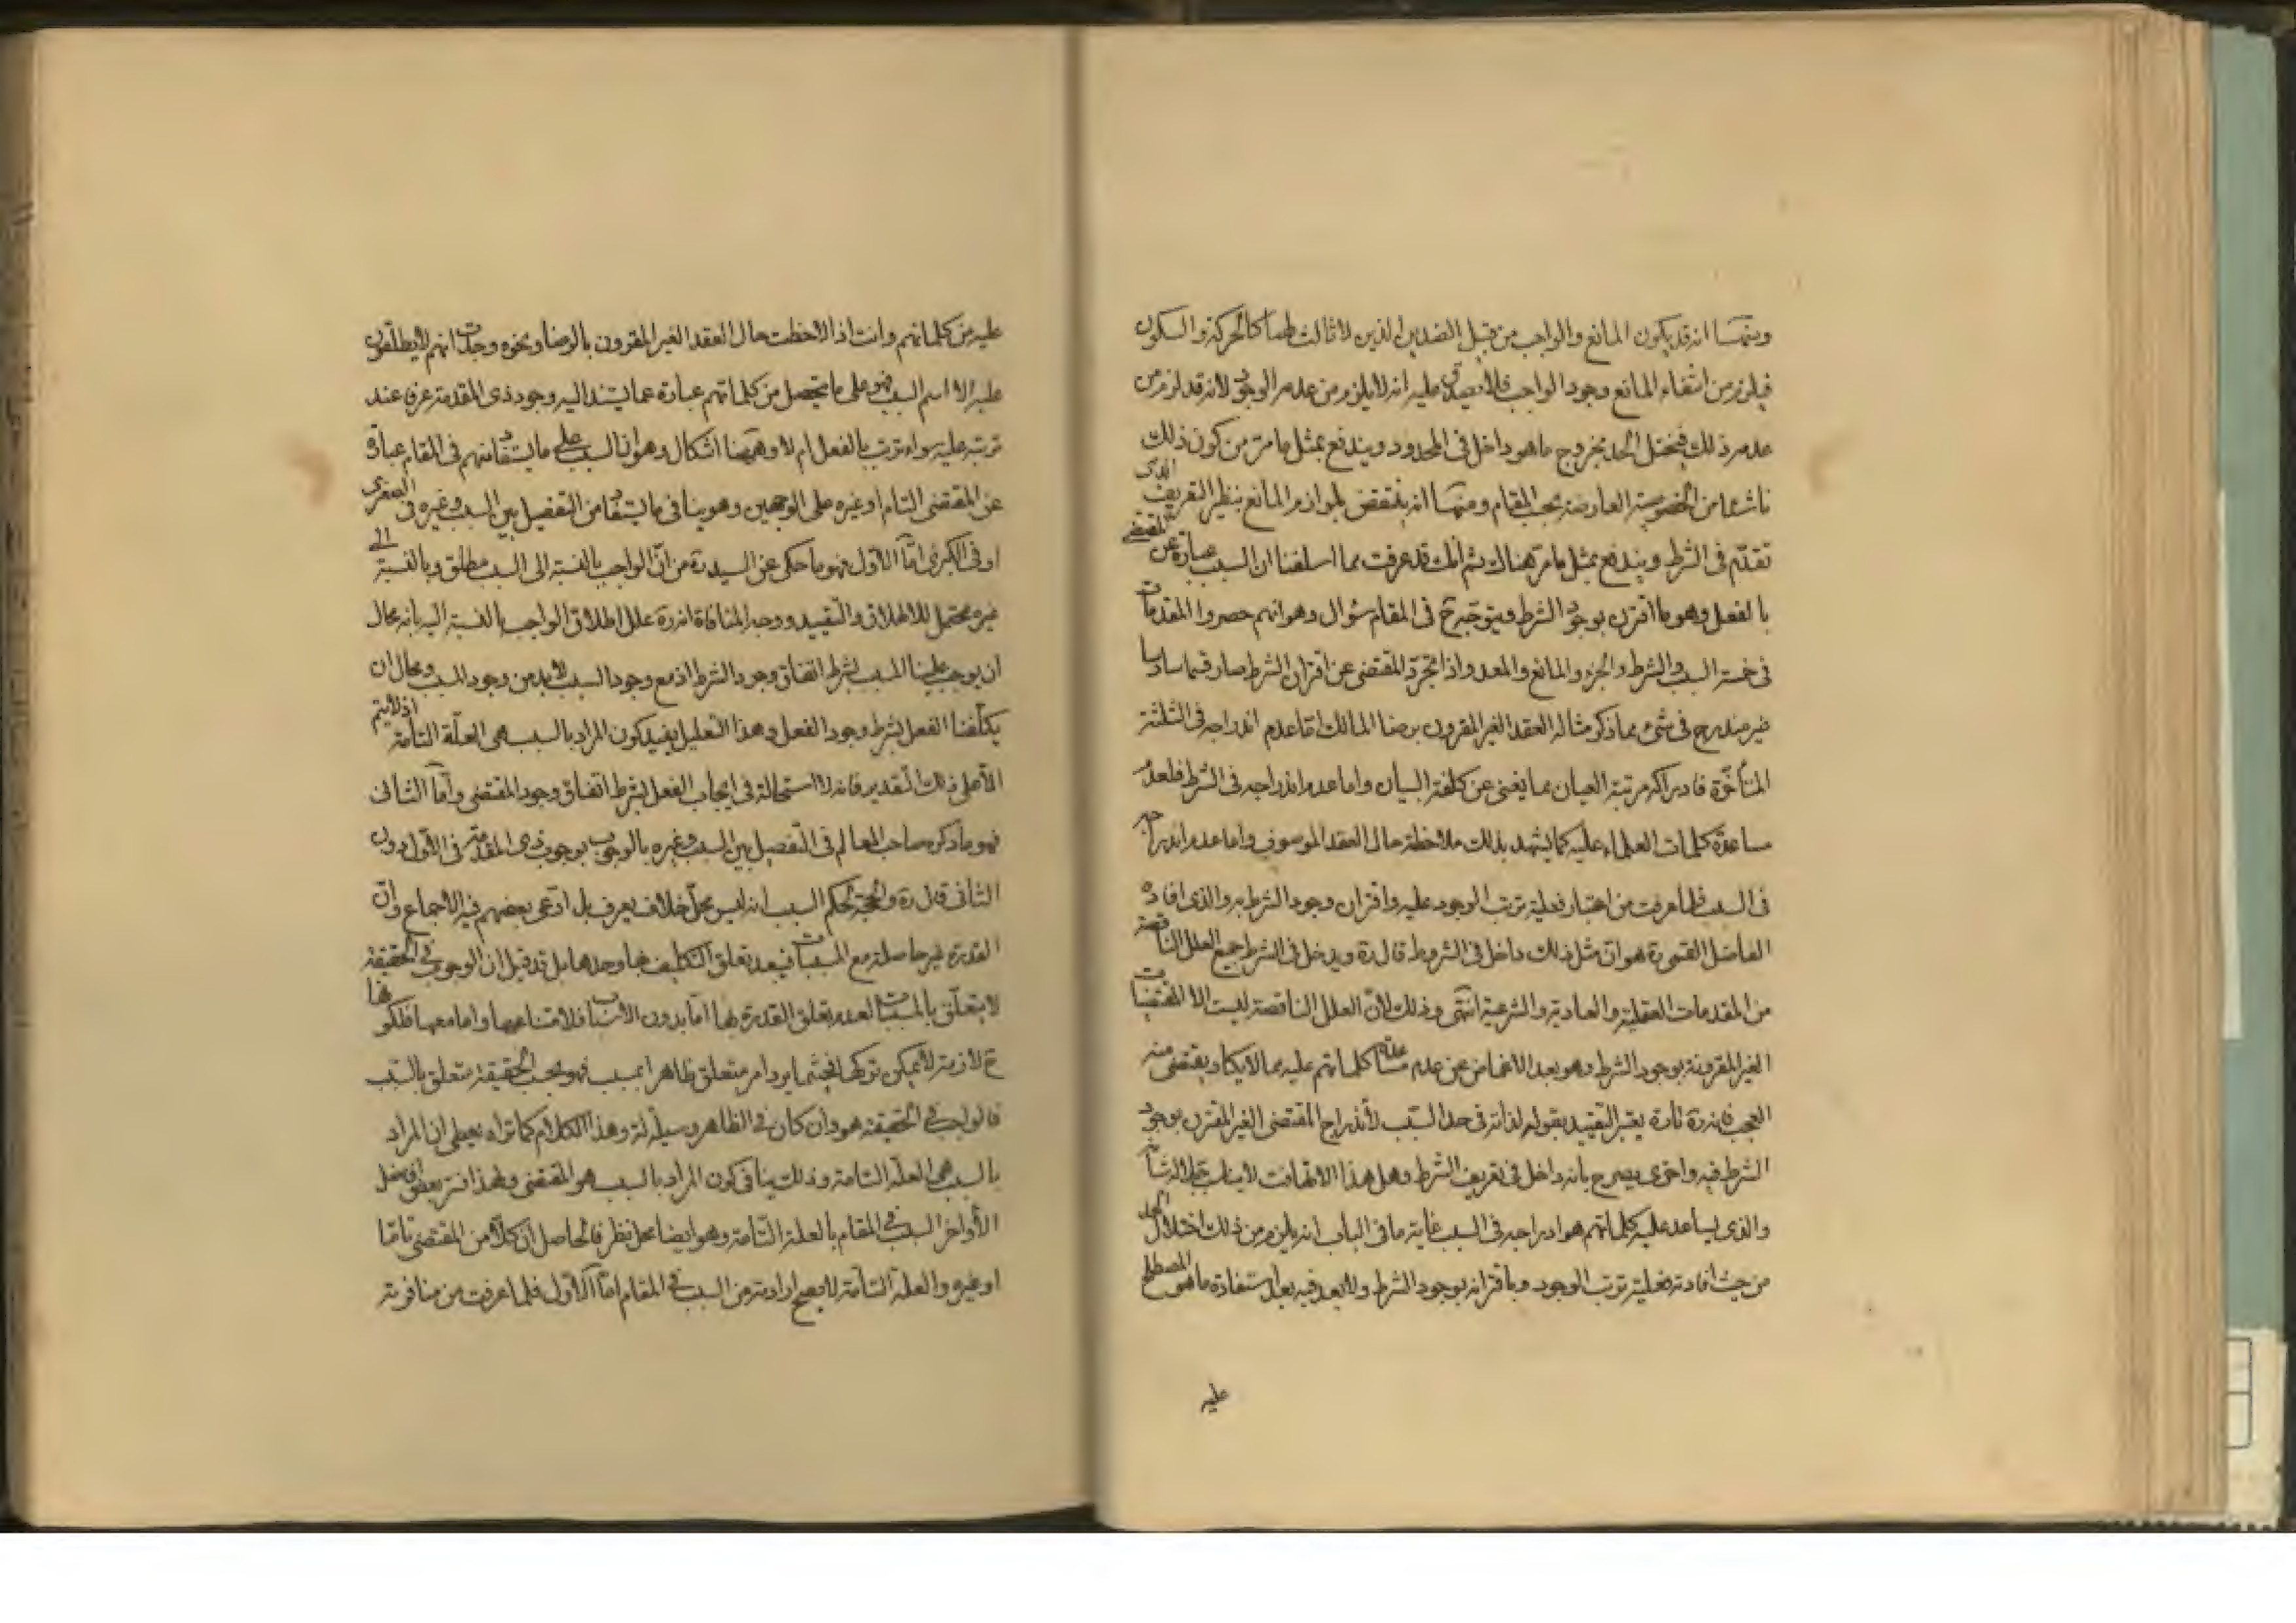 ومنها انه قد يكون المانع والواجب من قبيل الضدين الذين لا ثالث لهما كالحركة والسكون
فيلزم من انتفاء المانع وجود الواجب فلا يصدق عليه انه لا يلزم من عدمه الوجود لانه قد لزم من
عدمه ذلك فيختل الحد بخروج ما هو داخل في المحدود ويندفع بمثل ما مر من كون ذلك
ناشئا من الخصوصية العارضة بحسب المقام ومنها انه ينتقض بلوازم المانع بنظير التقريب الذى
تقدم في الشرط ويندفع بمثل ما مر هناك ثم انك قد عرفت مما اسلفنا ان السبب عبارة عن المقتضى
بالفعل وهو ما اقترن بوجود الشرط ويتوجه ح في المقام سؤال وهو انهم حصروا المقدمات
في خمسة السبب والشرط والجزء والمانع والمعد واذا تجرد المقتضى عن اقتران الشرط صار قسما سادسا
غير مندرج في شيء مما ذكر مثاله العقد الغير المقرون برضا المالك اما عدم اندراجه في الثلثة
المتأخرة فادراكه مرتبة العيان مما يغنى عن كلفة البيان واما عدم اندراجه في الشرط فلعدم
مساعدة كلمات العلماء عليه كما يشهد بذلك ملاحظة حال العقد الموصوف واما عدم اندراجه
في السبب فلما عرفت من اعتبار فعلية ترتب الوجود عليه واقتران وجود الشرط به والذى افاده
الفاضل القمى ره هو ان مثل ذلك داخل في الشروط قال ره ويدخل في الشرط جميع العلل الناقصة
من المقدمات العقلية والعادية والشرعية انتهى وذلك لان العلل الناقصة ليست الا المقتضيات
الغير المقرونة بوجود الشرط وهو بعد الاغماض عن عدم مساعدة كلماتهم عليه مما لا يكاد يقتضى منه
العجب فانه ره تارة يعتبر التقييد بقوله لذاته في حد السبب لاندراج المقتضى الغير المقترن بوجود
الشرط فيه واخرى يصرح بانه داخل في تعريف الشرط وهل هذا الا تهافت لا يناسب جلالة شأنه
والذى يساعد عليه كلماتهم هو ادراجه في السبب غاية ما في الباب انه يلزم من ذلك اختلال الحد
من حيث افادته فعلية ترتب الوجود وباقترانه بوجود الشرط ولا بعد فيه بعد استفادة ما هو المصطلح
عليه
عليه من كلماتهم وانت اذا لاحظت حال العقد الغير المقرون بالرضا ونحوه وجدت انهم لا يطلقون
عليه الا اسم السبب فهو على ما يتحصل من كلماتهم عبارة عما يستند اليه وجود ذى المقدمة عرفا عند
ترتبه عليه سواء ترتب بالفعل ام لا وههنا اشكال وهو ان السبب على ما يستفاد منهم في المقام عبارة
عن المقتضى التام او غيره على الوجهين وهو ينافى ما يستفاد من التفصيل بين السبب وغيره فى الصغرى
او في الكبرى اما الاول فهو ما حكى عن السيد ره من ان الواجب بالنسبة الى السبب مطلق وبالنسبة الى
غيره محتمل للاطلاق والتقييد ووجه المنافاة انه ره علل اطلاق الواجب بالنسبة اليه بانه محال
ان يوجب علينا المسبب بشرط اتفاق وجود الشرط اذ مع وجود السبب لابد من وجود المسبب ومحال ان
يكلفنا الفعل بشرط وجود الفعل وهذا التعليل يفيد كون المراد بالسبب هى العلة التامة اذ لا يتم
الا على ذلك التقدير فانه لا استحالة في ايجاب الفعل بشرط اتفاق وجود المقتضى واما الثانى
فهو ما ذكره صاحب المعالم في التفصيل بين السبب وغيره بالوجوب بوجوب ذى المقدمة في الاول دون
الثانى قال ره والحجة لحكم السبب انه ليس محل خلاف يعرف بل ادعى بعضهم فيه الاجماع وان
القدرة غير حاصلة مع المسببات فيبعد تعلق التكليف بها وحدها بل قد قيل ان الوجوب في الحقيقة
لا يتعلق بالمسببات لعدم تعلق القدرة بها اما بدون الاسباب فلامتناعها واما معها فلكونها
ح لازمة لا يمكن تركها فحيثما يرد امر متعلق ظاهرا بمسبب فهو بحسب الحقيقة متعلق بالسبب
فالواجب في الحقيقة هو وان كان في الظاهر وسيلة له وهذا الكلام كما تراه يعطى ان المراد
بالسبب هى العلة التامة وذلك ينافى كون المراد بالسبب هو المقتضى ولهذا فسر بعض افاضل
الأواخر السبب في المقام بالعلة التامة وهو ايضا محل نظر فالحاصل ان كلا من المقتضى تاما
او غيره والعلة التامة لا يصح ارادته من السبب في المقام اما الاول فلما عرفت من منافرته